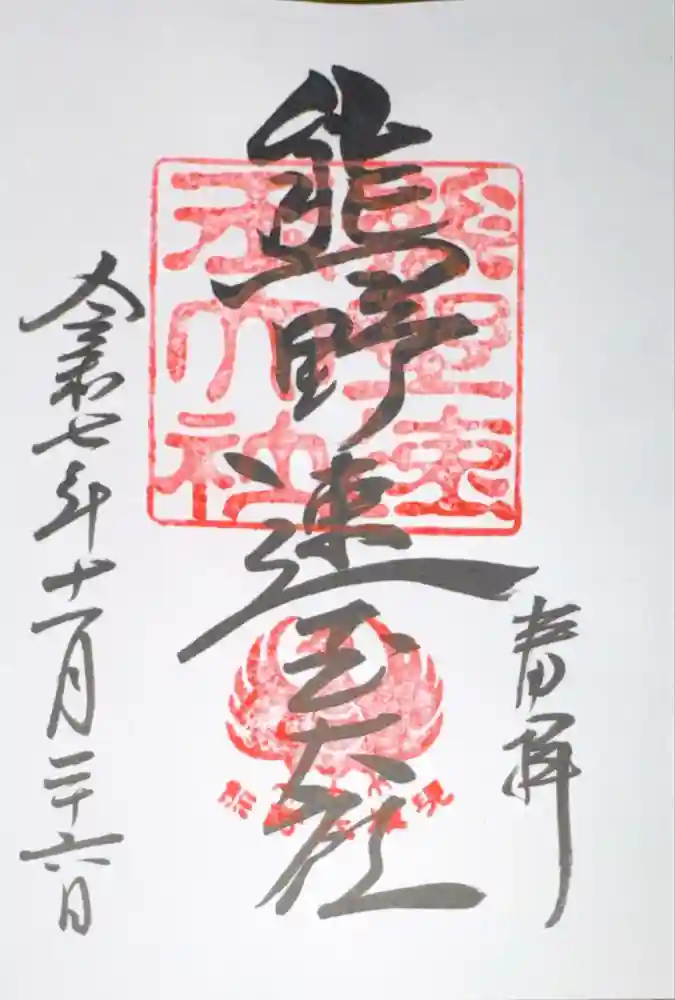 奉拝
熊野速玉大社
令和七年十一月二十六日
熊野速
玉大社